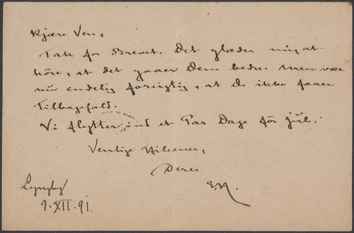 Kjære Ven,
Tak for Brevet. Det glæder mig at
höre, at det gaaer Dem bedre. Men vær
nu endelig forsigtig, at De ikke faaer
Tilbagefald.
Vi flytter ind et Par Dage för Jul.
Venlige Hilsener,
Deres
Lyngby
9.XII.91.